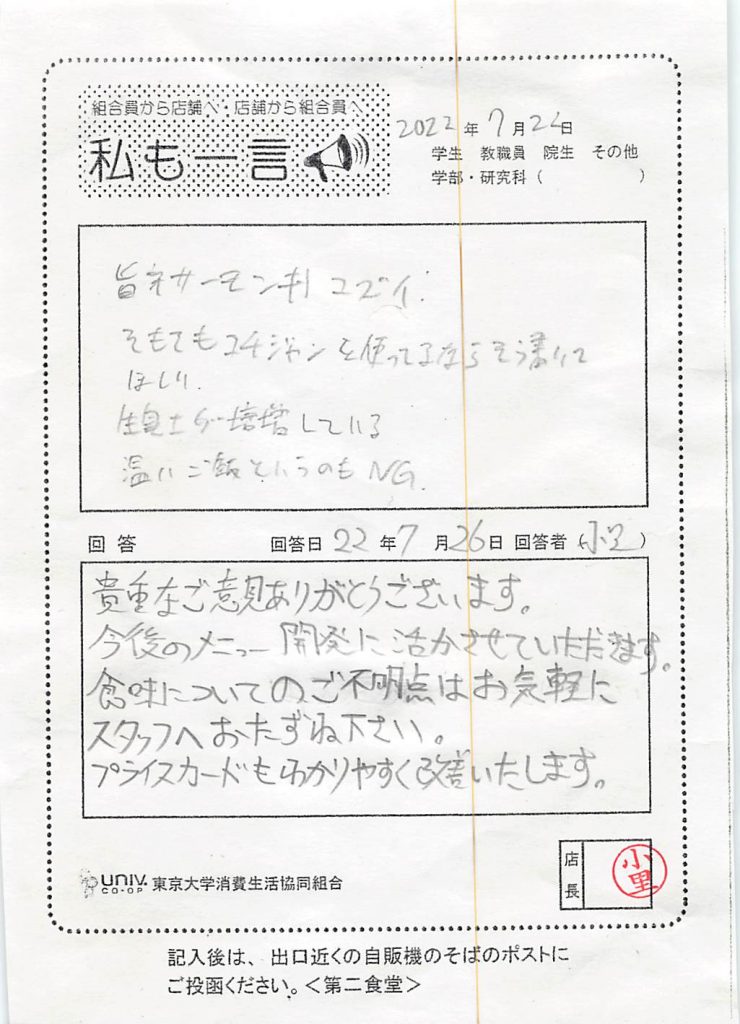 組合員から店舗へ 店舗から組合員へ
私も一言
2022年7月22日
学生 教職員 院生 その他
学部・研究科( )
旨ネサーモン丼 マズイ.
そもそもコチジャンを使ってるならそう書いて
ほしい.
生臭さが倍増している
温いご飯というのもNG.
回答 回答日 22年7月26日 回答者(小里)
貴重なご意見ありがとうございます。
今後のメニュー開発に活かさせていただきます。
食味についてのご不明点はお気軽に
スタッフへおたずね下さい。
プライスカードもわかりやすく改善いたします。
UNIV. CO-OP 東京大学消費生活協同組合
店長
小里
記入後は、出口近くの自販機のそばのポストに
ご投函ください。<第二食堂>